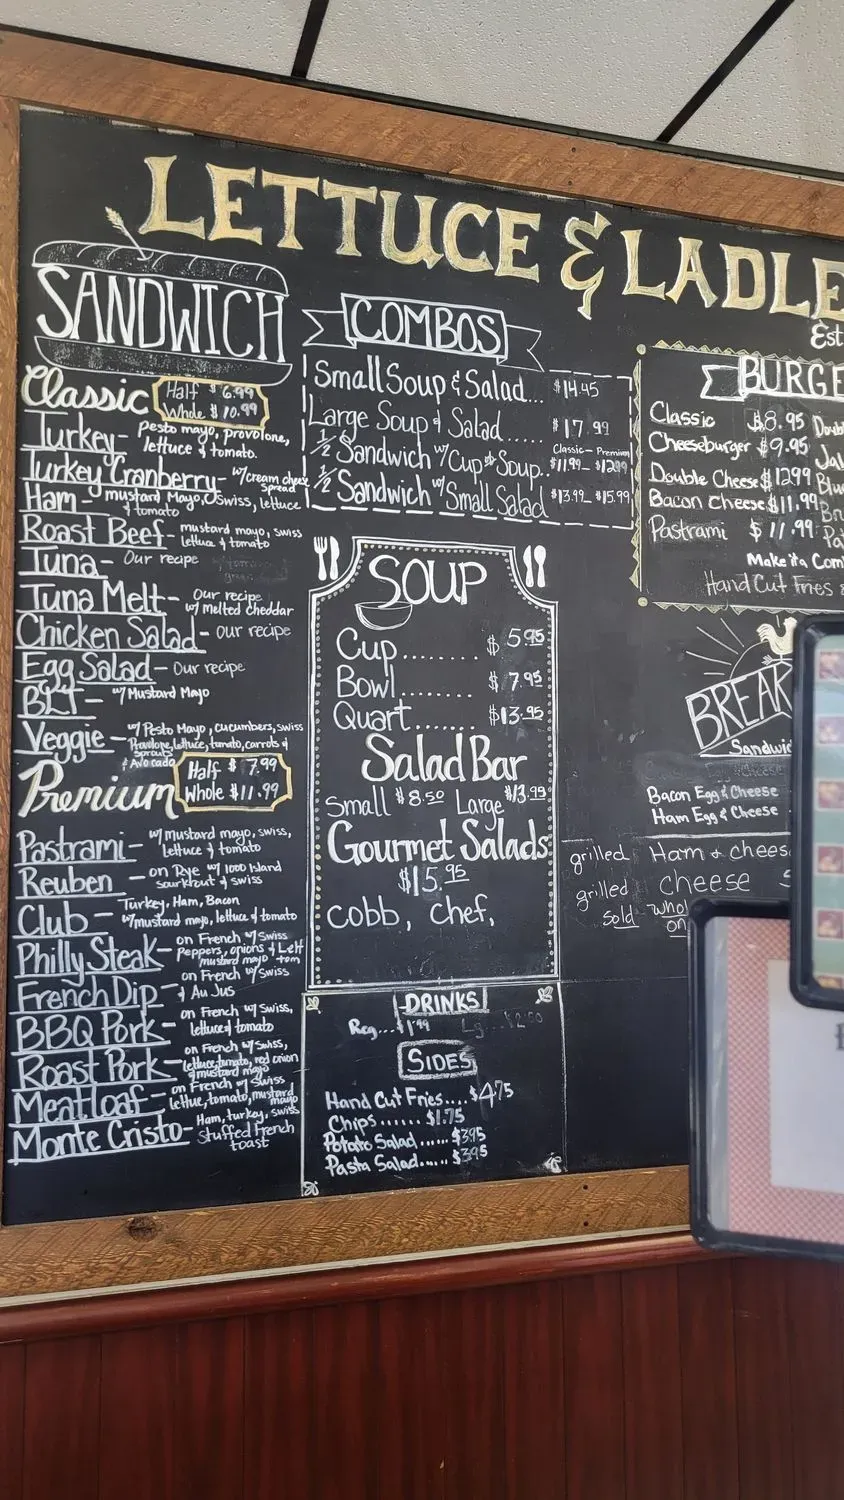 LETTUCE & LADLE
Est
SANDWICH
Classic
Half $ 6.99
Whole $ 10.99
Turkey- Pesto mayo, provolone,
lettuce & tomato.
Turkey Cranberry- w/cream cheese
spread
Ham- mustard Mayo, Swiss, lettuce
& tomato
Roast Beef- mustard mayo, swiss
lettuce & tomato
Tuna- Our recipe
Tuna Melt- Our recipe
w/ melted cheddar
Chicken Salad- our recipe
Egg Salad- Our recipe
BLT- w/ Mustard Mayo
Veggie- w/ Pesto Mayo, cucumbers, swiss
Provolone, lettuce, tomato, carrots &
sprouts
& Avocado
Premium
Half $ 7.99
Whole $11.99
Pastrami- w/ mustard mayo, swiss,
lettuce & tomato
Reuben- on Rye w/ 1000 Island
sourkrout & swiss
Club- Turkey, Ham, Bacon
w/mustard mayo, lettuce & tomato
Philly Steak- on French w/ Swiss
Peppers, onions & Lett
mustard mayo tom
French Dip- on French w/ Swiss
& Au Jus
BBQ Pork- on French w/ Swiss,
lettuce & tomato
Roast Pork- on French w/ Swiss,
lettuce, tomato, red onion
& mustard mayo
Meatloaf- on French w/ Swiss
lettue, tomato, mustard
mayo
Monte Cristo- Ham, turkey, swiss
Stuffed French
toast
COMBOS
Small Soup & Salad... $14.45
Large Soup & Salad..... $17.99
Classic - Premium
1/2 Sandwich w/ Cup Soup.. $11.99- $12.99
1/2 Sandwich w/ Small Salad $13.99- $15.99
SOUP
Cup........ $ 5.95
Bowl........ $ 7.95
Quart....... $13.95
Salad Bar
Small $8.50 Large $13.99
Gourmet Salads
$15.95
cobb, chef,
DRINKS
Reg...$1.99 Lg...$2.50
SIDES
Hand Cut Fries.... $4.75
Chips...... $1.75
Potato Salad...... $3.95
Pasta Salad..... $3.95
BURGE
Classic $8.95
Cheeseburger $9.95
Double Cheese $12.99
Bacon Cheese $11.99
Pastrami $ 11.99
Make it a Com
Hand Cut Fries &
BREAK
Sandwic
Bacon Egg & Cheese
Ham Egg & Cheese
grilled Ham & chees
grilled cheese
sold Whol
on